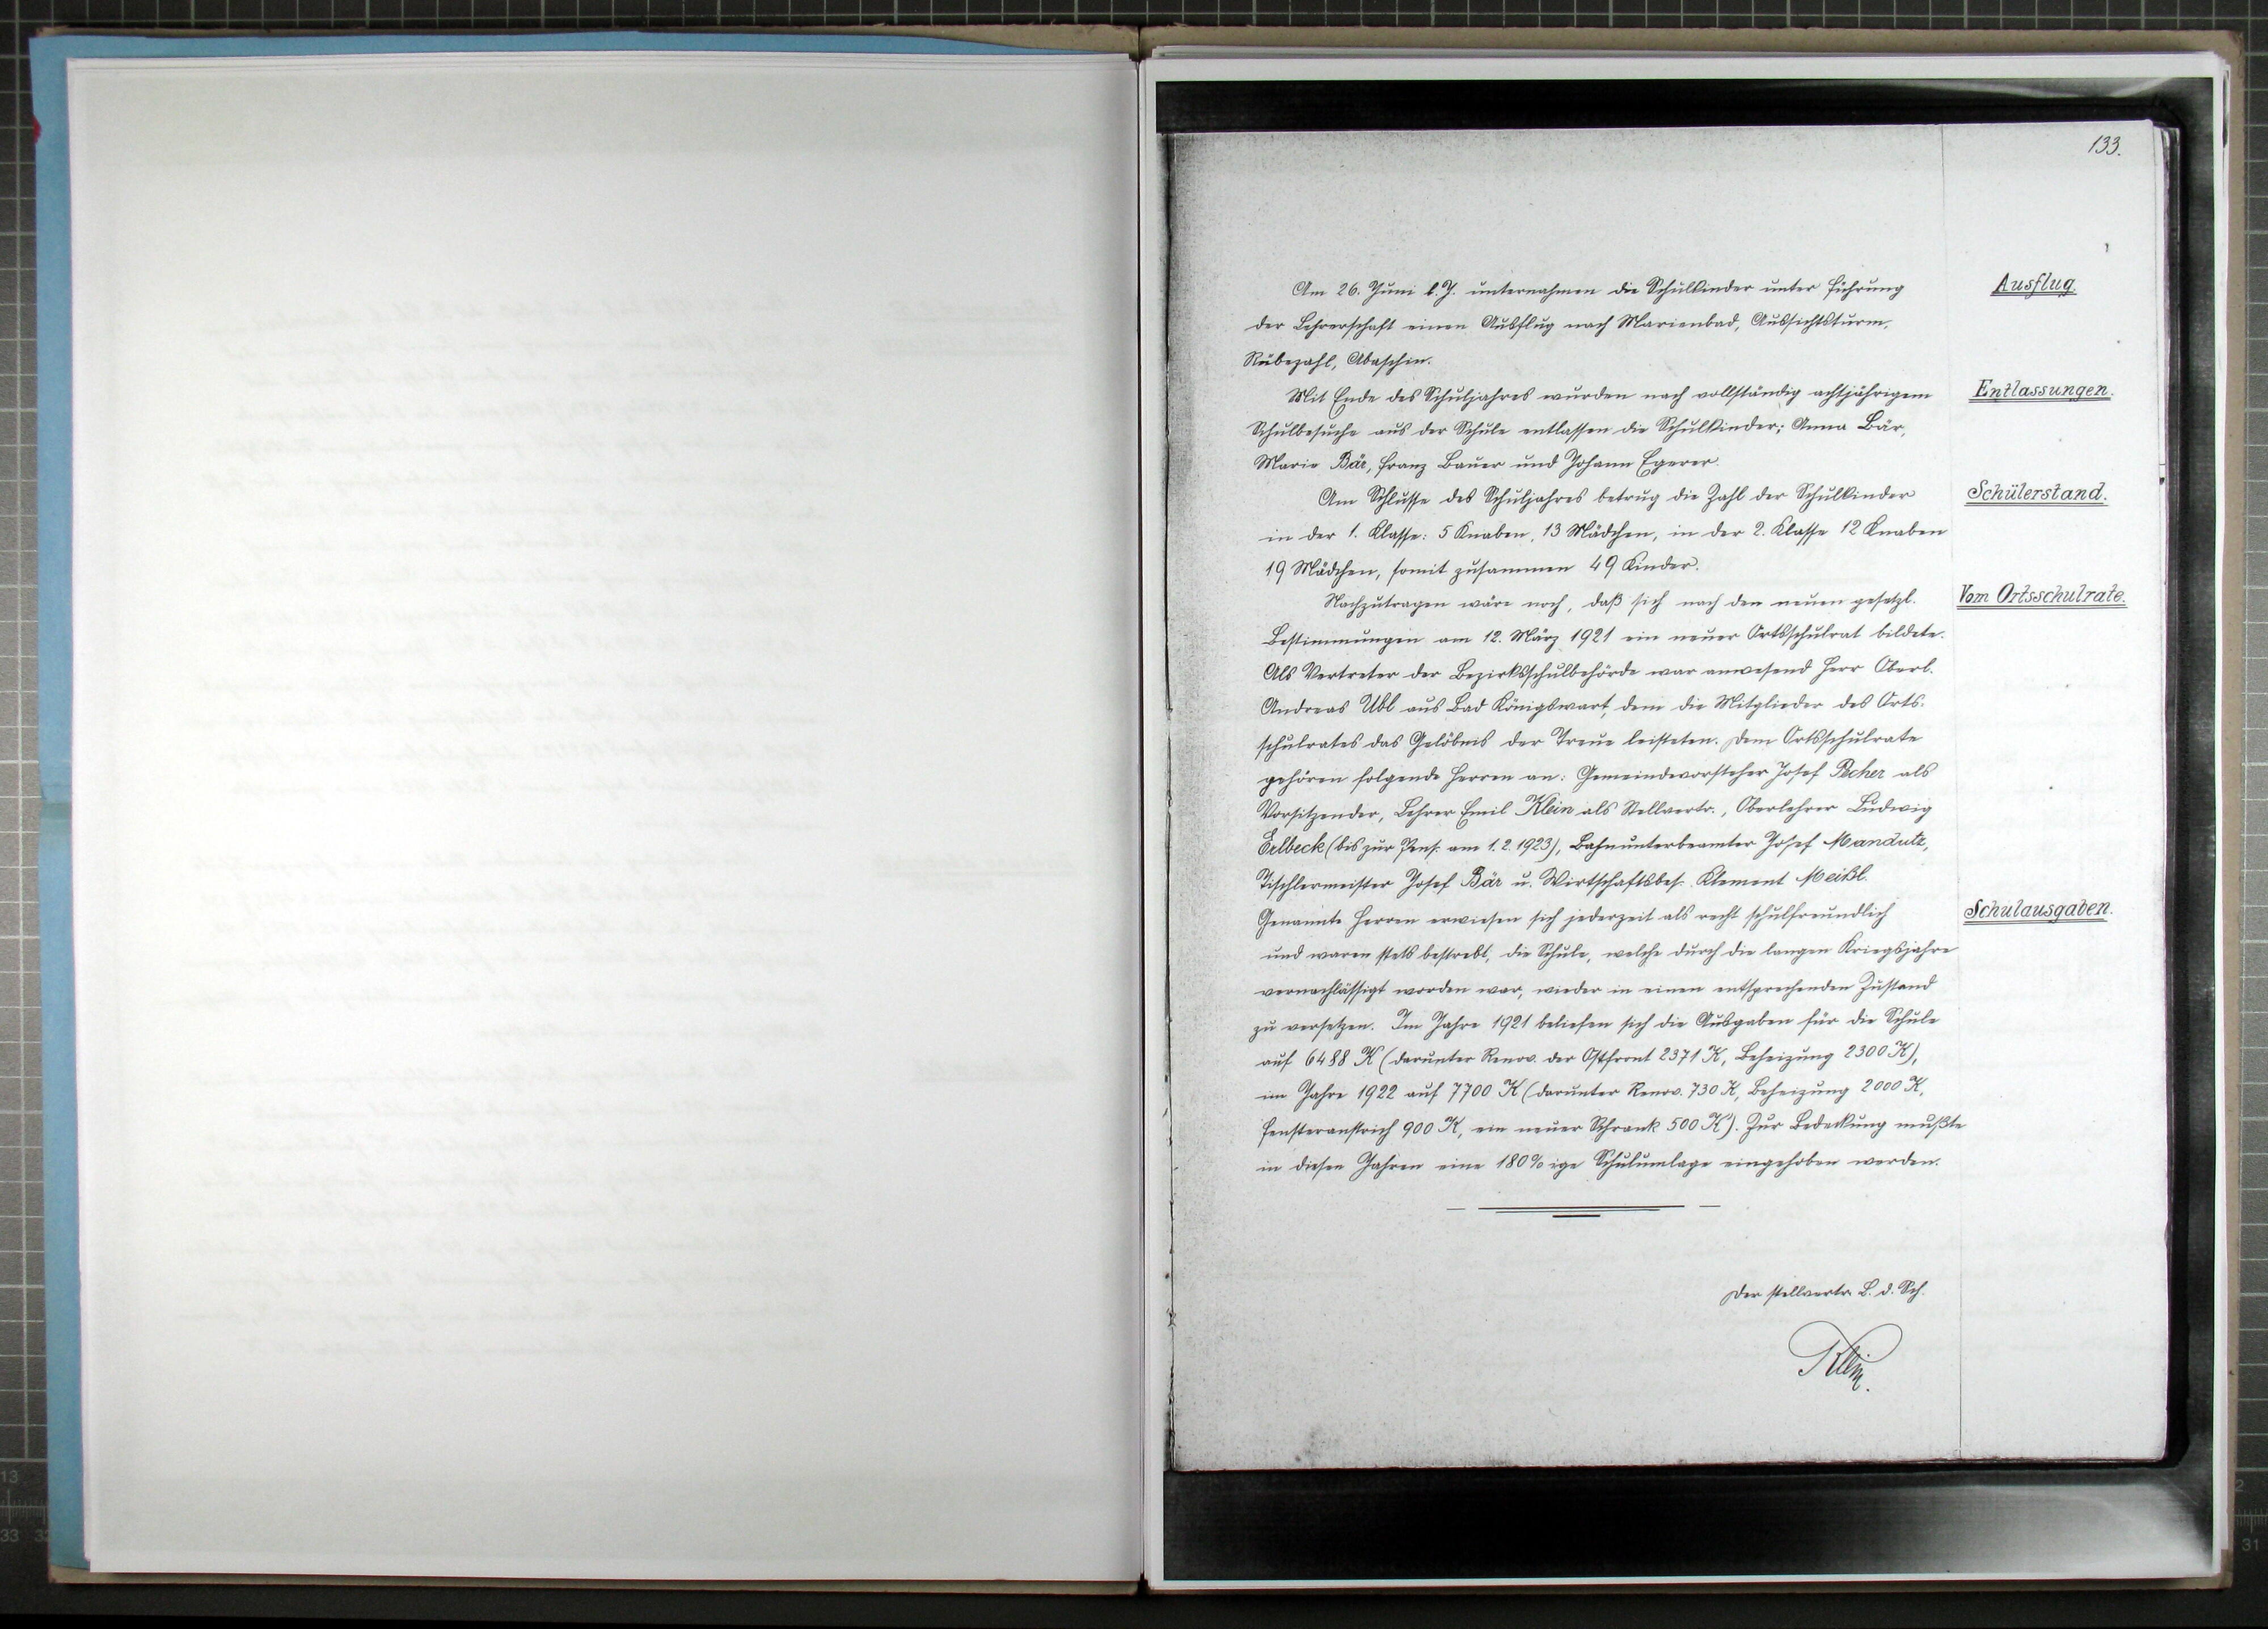 133.
Ausflug.
Am 26. Juni l. J. unternahmen die Schulkinder unter Führung
der Lehrerschaft einen Ausflug nach Marienbad, Aussichtsturm,
Rübezahl, Abaschin.
Entlassungen.
Mit Ende des Schuljahres wurden nach vollständig achtjährigem
Schulbesuche aus der Schule entlassen die Schulkinder; Anna Bär,
Marie Bär, Franz Bauer und Johann Egerer.
Schülerstand.
Am Schlusse des Schuljahres betrug die Zahl der Schulkinder
in der 1. Klasse: 5 Knaben, 13 Mädchen, in der 2. Klasse 12 Knaben
19 Mädchen, somit zusammen 49 Kinder.
Vom Ortsschulrate.
Nachzutragen wäre noch, daß sich nach den neuen gesetzl.
Bestimmungen am 12. März 1921 ein neuer Ortsschulrat bildete.
Als Vertreter der Bezirksschulbehörde war anwesend Herr Oberl.
Andreas Ubl aus Bad Königswart, dem die Mitglieder des Orts-
schulrates das Gelöbnis der Treue leisteten. Dem Ortsschulrate
gehören folgende Herren an: Gemeindevorsteher Josef Pecher als
Vorsitzender, Lehrer Emil Klein als Stellvertr., Oberlehrer Ludwig
Erlbeck (bis zur Pens. am 1. 2. 1923), Bahnunterbeamter Josef Mandutz,
Tischlermeister Josef Bär u. Wirtschaftsbes. Klement Meißl.
Schulausgaben.
Genannte Herren erwiesen sich jederzeit als recht schulfreundlich
und waren stets bestrebt, die Schule, welche durch die langen Kriegsjahre
vernachlässigt worden war, wieder in einen entsprechenden Zustand
zu versetzen. Im Jahre 1921 beliefen sich die Ausgaben für die Schule
auf 6488 K (darunter Renov. der Ostfront 2371 K, Beheizung 2300 K),
im Jahre 1922 auf 7700 K (darunter Renov. 730 K, Beheizung 2000 K,
Fensteranstrich 900 K, ein neuer Schrank 500 K). Zur Bedeckung mußte
in diesen Jahren eine 180%ige Schulumlage eingehoben werden.
Der stellvertr. L. d. Sch.
Klein.